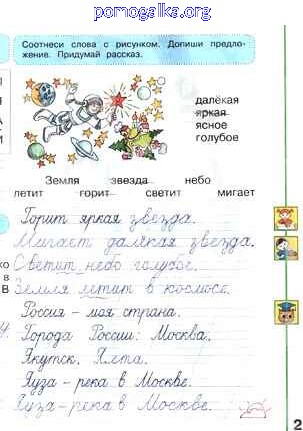 pomogalka.org
Соотнеси слова с рисунком. Допиши предло-
жение. Придумай рассказ.
далёкая
яркая
ясное
голубое
Земля звезда небо
летит горит светит мигает
Горит яркая звезда.
Мигает далёкая звезда.
Светит небо голубое.
Земля летит в космосе.
Россия – моя страна.
Города России: Москва.
Якутск. Ялта.
Яуза – река в Москве.
Яуза – река в Москве.
2